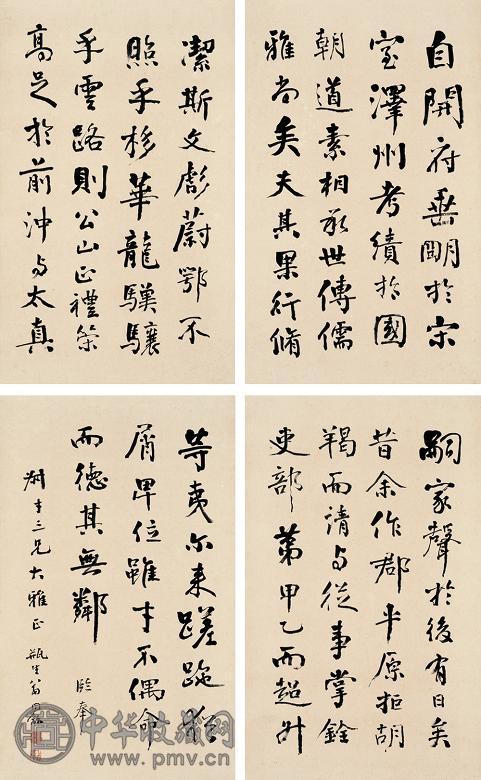 自開府垂明於宋
室澤州考績於國
朝道素相承世傳儒
雅尚矣夫其果行脩
潔斯文彪蔚鄂不
照乎栘華龍驥驤
乎雲路則公山正禮策
高足於前沖与太真
嗣家聲於後有日矣
昔余作郡平原拒胡
羯而請与從事掌銓
吏部第甲乙而超升
等夷尔来蹉跎猶
屑卑位雖才不偶命
而德其無鄰 臨奉
三兄大雅正 瓶生翁同龢
中华收藏网
www.pmv.cn